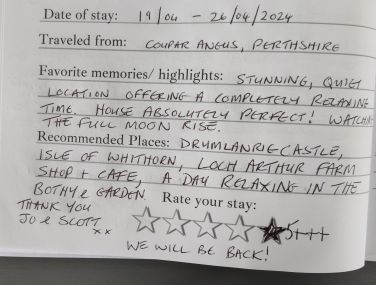 Date of stay: 19/04 - 26/04/2024
Traveled from: COUPAR ANGUS, PERTHSHIRE
Favorite memories/ highlights: STUNNING, QUIET
LOCATION OFFERING A COMPLETELY RELAXING
TIME. HOUSE ABSOLUTELY PERFECT! WATCHING
THE FULL MOON RISE.
Recommended Places: DRUMLANRIG CASTLE,
ISLE OF WHITHORN, LOCH ARTHUR FARM
SHOP + CAFE, A DAY RELAXING IN THE
BOTHY & GARDEN.
Rate your stay:
THANK YOU
JO & SCOTT xx
5+++
WE WILL BE BACK!